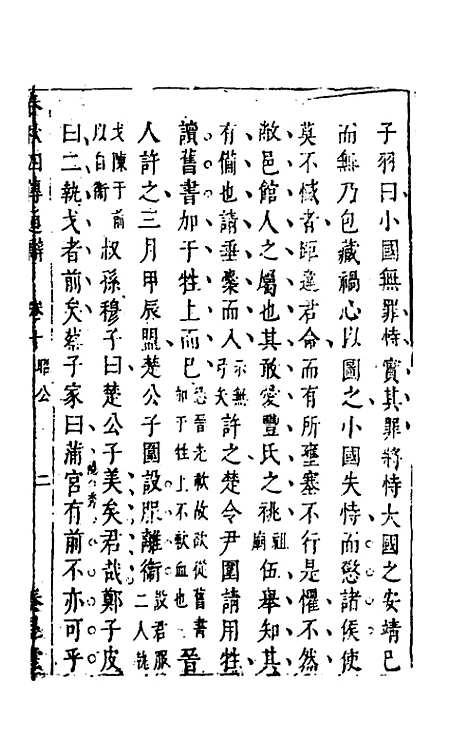 子羽曰小國無罪恃實其罪將恃大國之安靖已
而無乃包藏禍心以圖之小國失恃而懲諸侯使
莫不憾者距違君命而有所壅塞不行是懼不然
敝邑館人之屬也其敢愛豐氏之祧祖廟伍舉知其
有備也請垂櫜而入示無弓矣許之楚令尹圍請用牲
讀舊書加于牲上而已恐晉先歃故欲從舊書加于牲上不歃血也晉
人許之三月甲辰盟楚公子圍設服離衛設君服二人執
戈陳于前以自衛叔孫穆子曰楚公子美矣君哉鄭子皮
曰二執戈者前矣蔡子家曰蒲宮有前不亦可乎
春秋四傳通辭 卷十 昭公 二